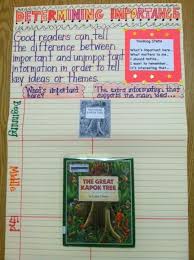 DETERMINING IMPORTANCE
Good readers can tell
the difference between
important and unimportant
information in order to tell
key ideas or themes.
Thinking Stems
What's important here...
What matters to me...
I should notice...
I want to remember...
It's interesting that...
What's important
here?
The extra information that
supports the main idea...
Beginning
Middle
End
THE GREAT
KAPOK TREE